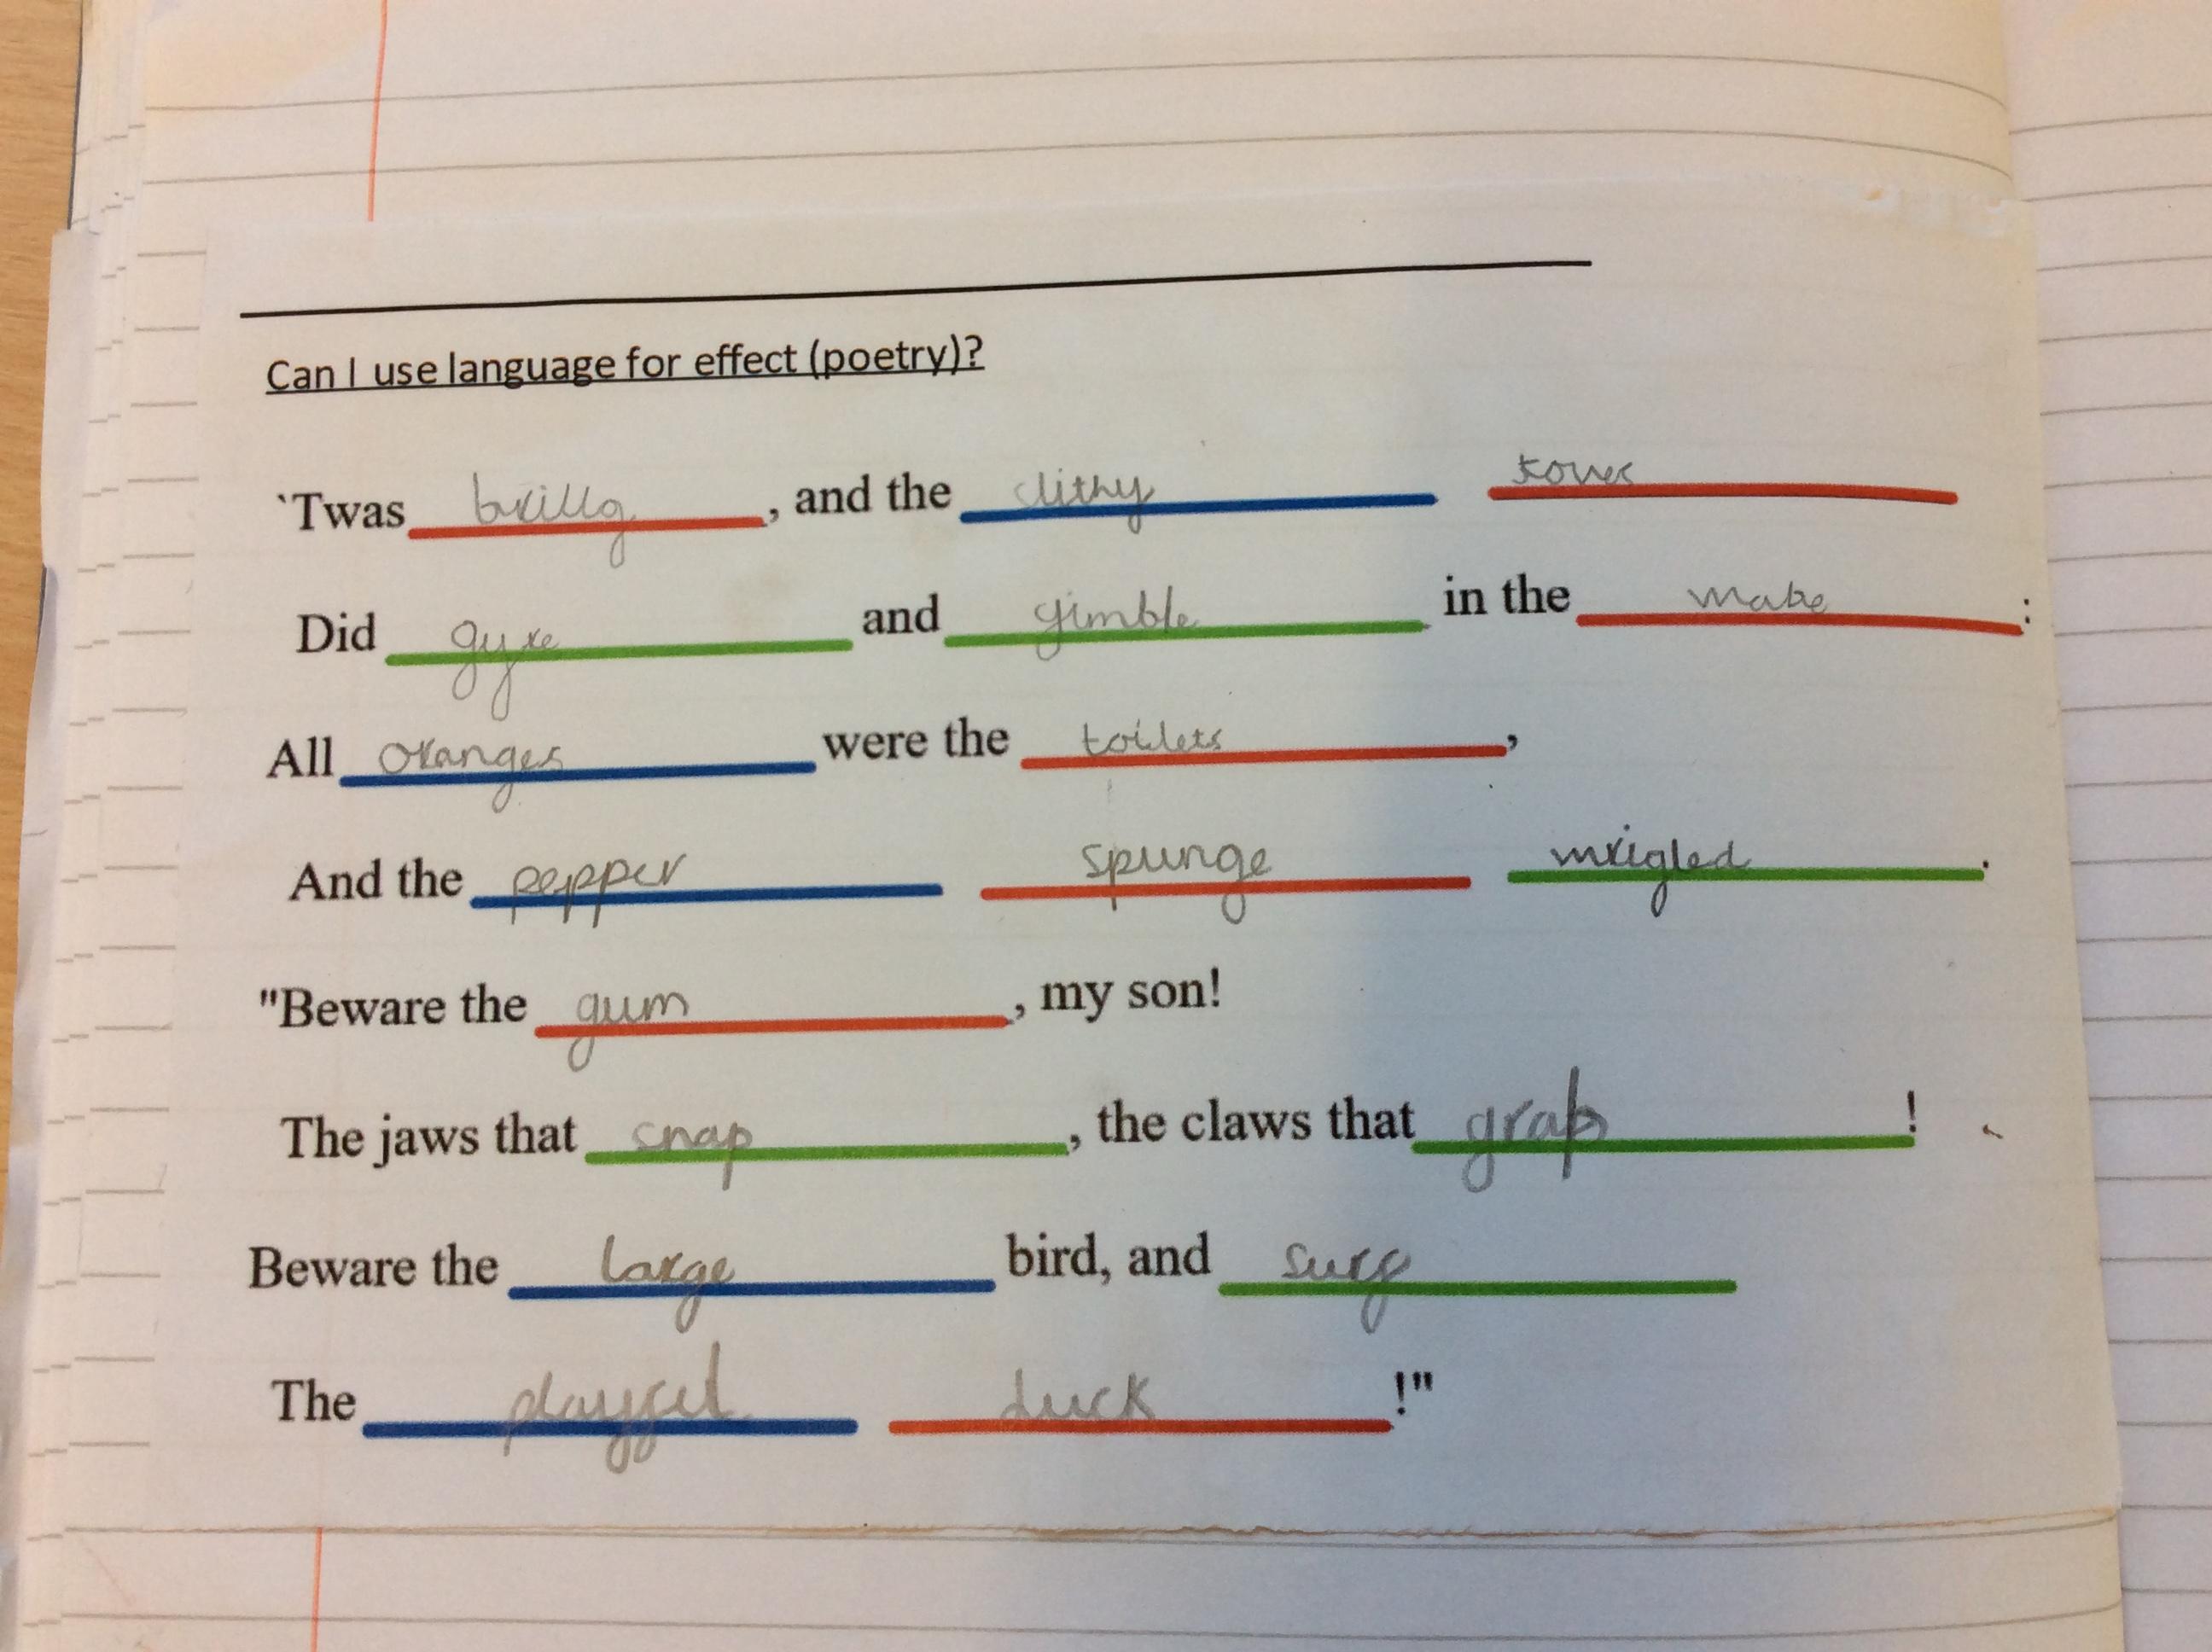 Can I use language for effect (poetry)?
`Twas brillg, and the slithy toves
Did gyre and gimble in the mabe:
All oranges were the toilets,
And the pepper spunge mrigled.
"Beware the gum, my son!
The jaws that snap, the claws that grab!
Beware the large bird, and surf
The playful duck!"